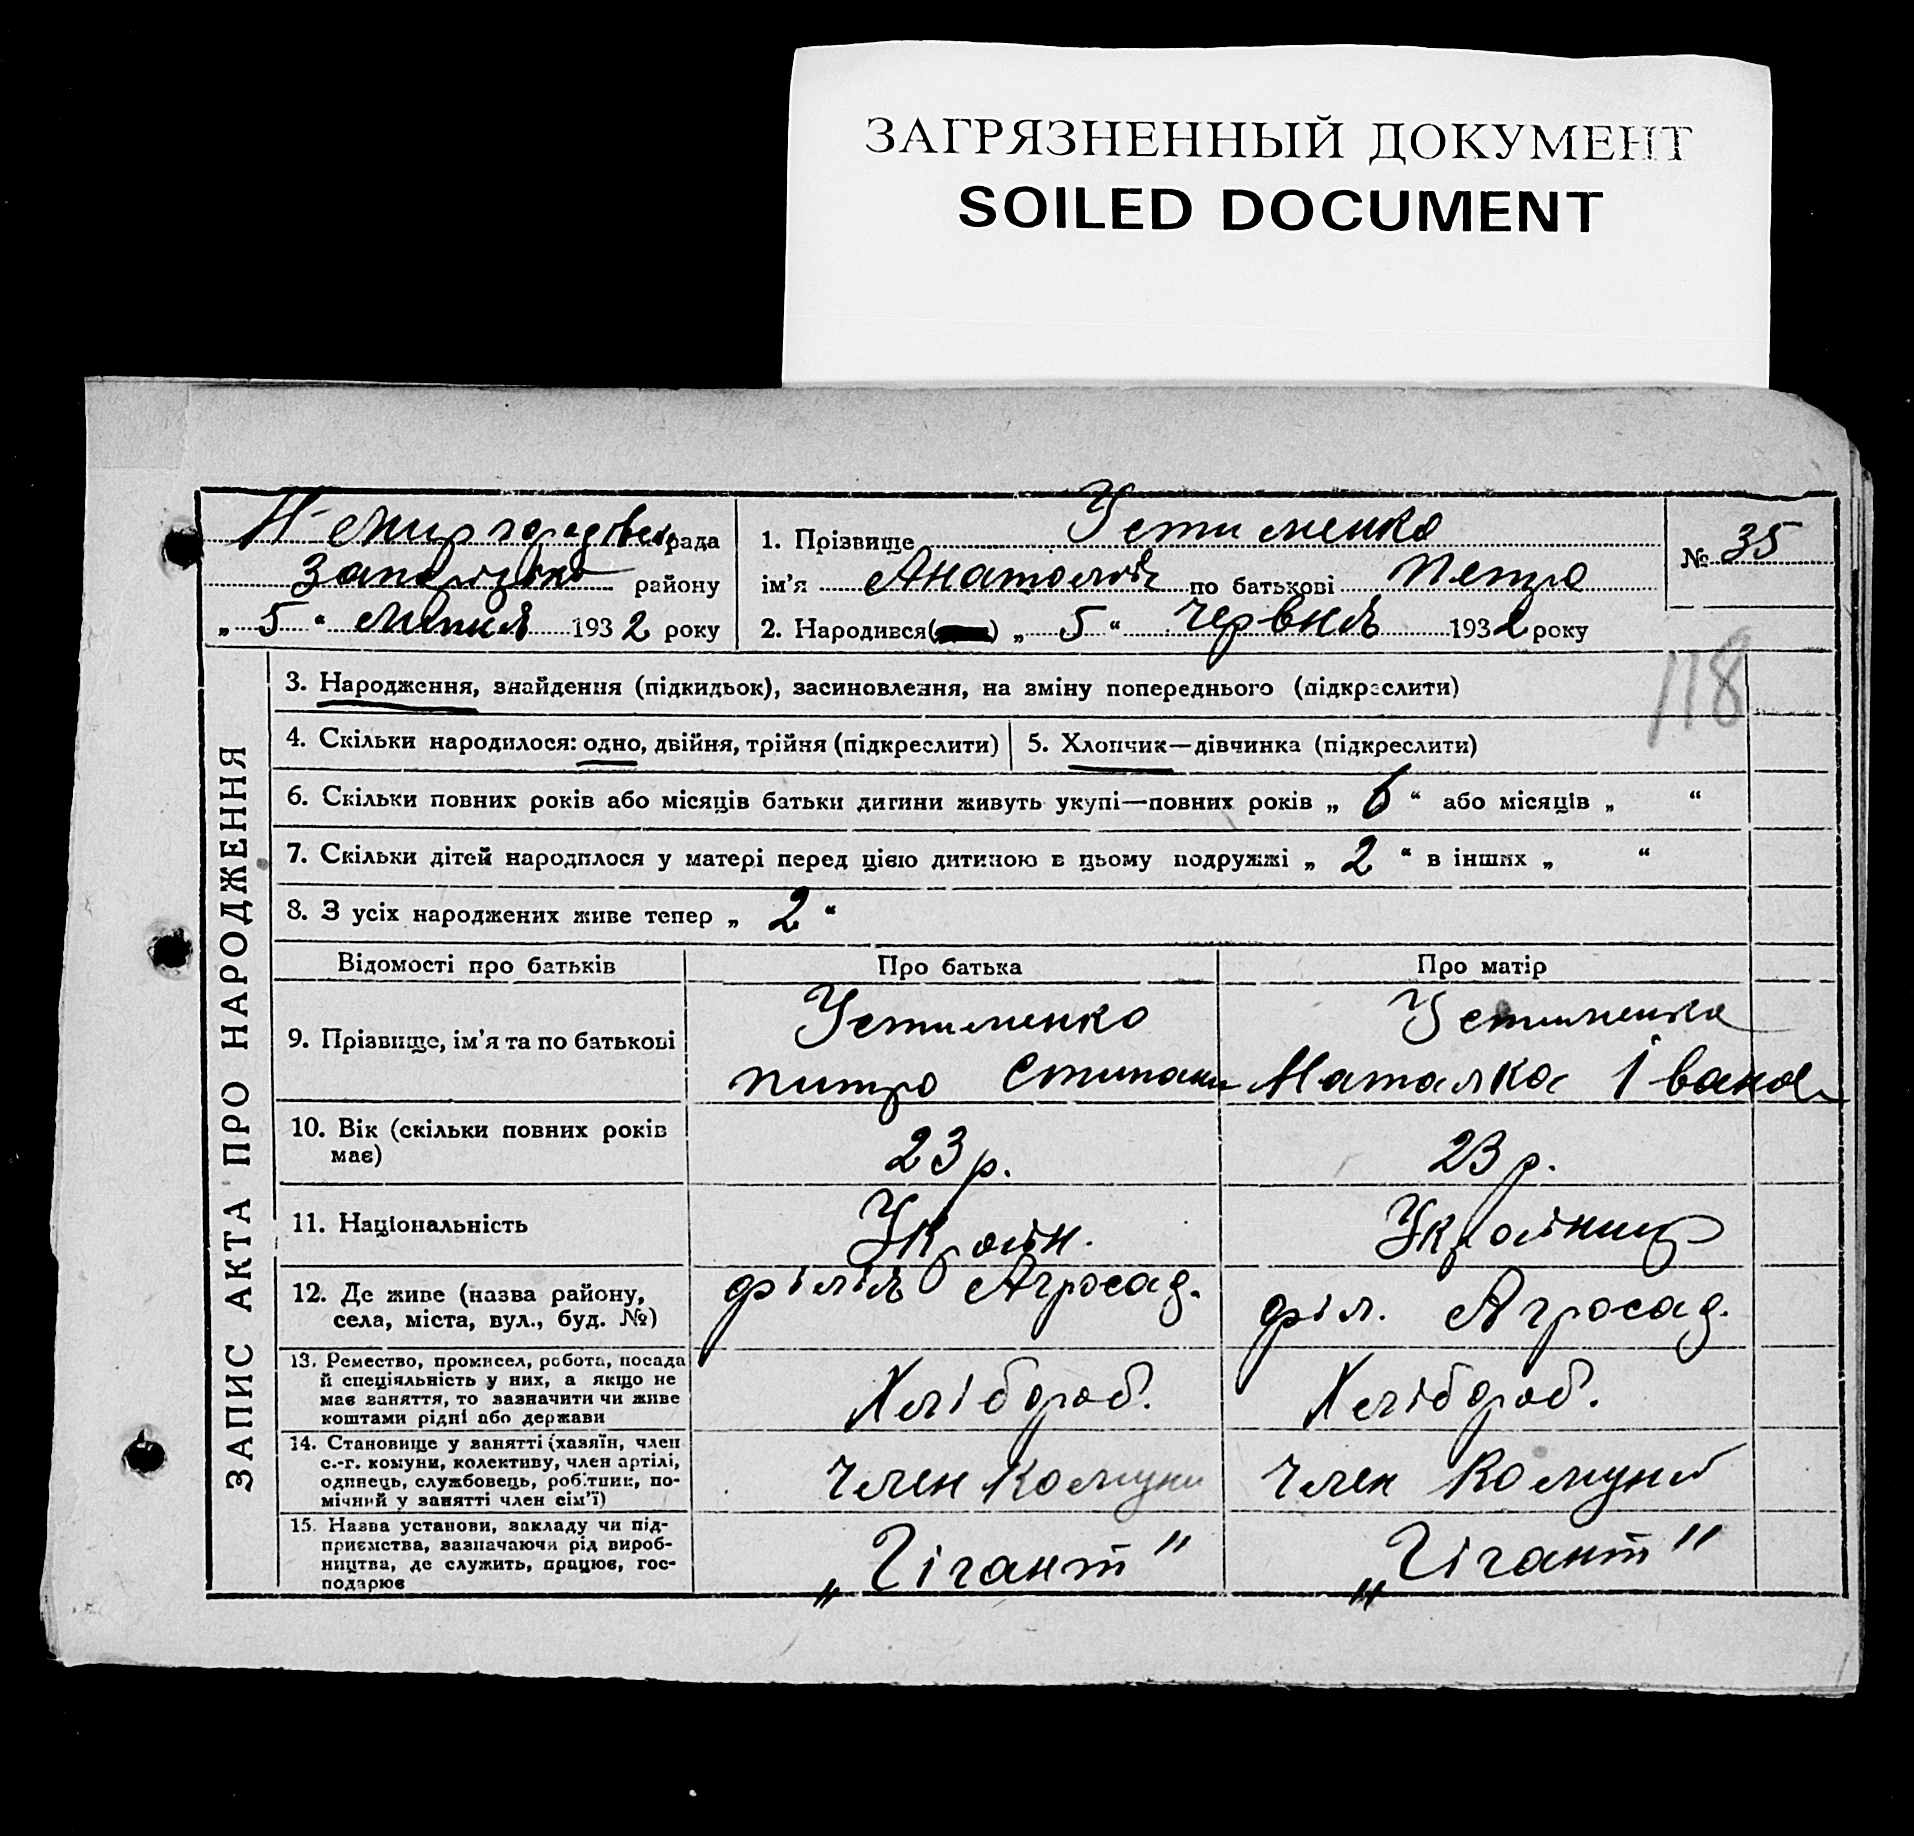 ЗАГРЯЗНЕННЫЙ ДОКУМЕНТ
SOILED DOCUMENT
рада
району
„ 5 “ липня 1932 року
1. Прізвище Устименко
ім’я Анатолій по батькові Петро
2. Народився( ) „ 5 “ червня 1932 року
№ 35
118
ЗАПИС АКТА ПРО НАРОДЖЕННЯ
3. Народження, знайдення (підкидьок), засиновлення, на зміну попереднього (підкреслити)
4. Скільки народилося: одно, двійня, трійня (підкреслити)
5. Хлопчик—дівчинка (підкреслити)
6. Скільки повних років або місяців батьки дитини живуть укупі—повних років „ 6 “ або місяців „ “
7. Скільки дітей народилося у матері перед цією дитиною в цьому подружжі „ 2 “ в інших „ “
8. З усіх народжених живе тепер „ 2 “
Відомості про батьків
Про батька
Про матір
9. Прізвище, ім’я та по батькові
Устименко
питро Стипани
Устименка
Наталка Іванов
10. Вік (скільки повних років
має)
23 р.
23 р.
11. Національність
Україн.
Українка
12. Де живе (назва району,
села, міста, вул., буд. №)
філія Агросад.
філ. Агросад.
13. Ремество, промисел, робота, посада
й спеціяльність у них, а якщо не
має заняття, то зазначити чи живе
коштами рідні або держави
Хлібороб.
Хлібороб.
14. Становище у занятті (хазяїн, член
с.-г. комуни, колективу, член артілі,
одинець, службовець, робітник, по-
мічний у занятті член сім’ї)
Член Комуни
Член Комуни
15. Назва установи, закладу чи під-
приємства, зазначаючи рід вироб-
ництва, де служить, працює, гос-
подарює
„Гігант"
„Гігант"